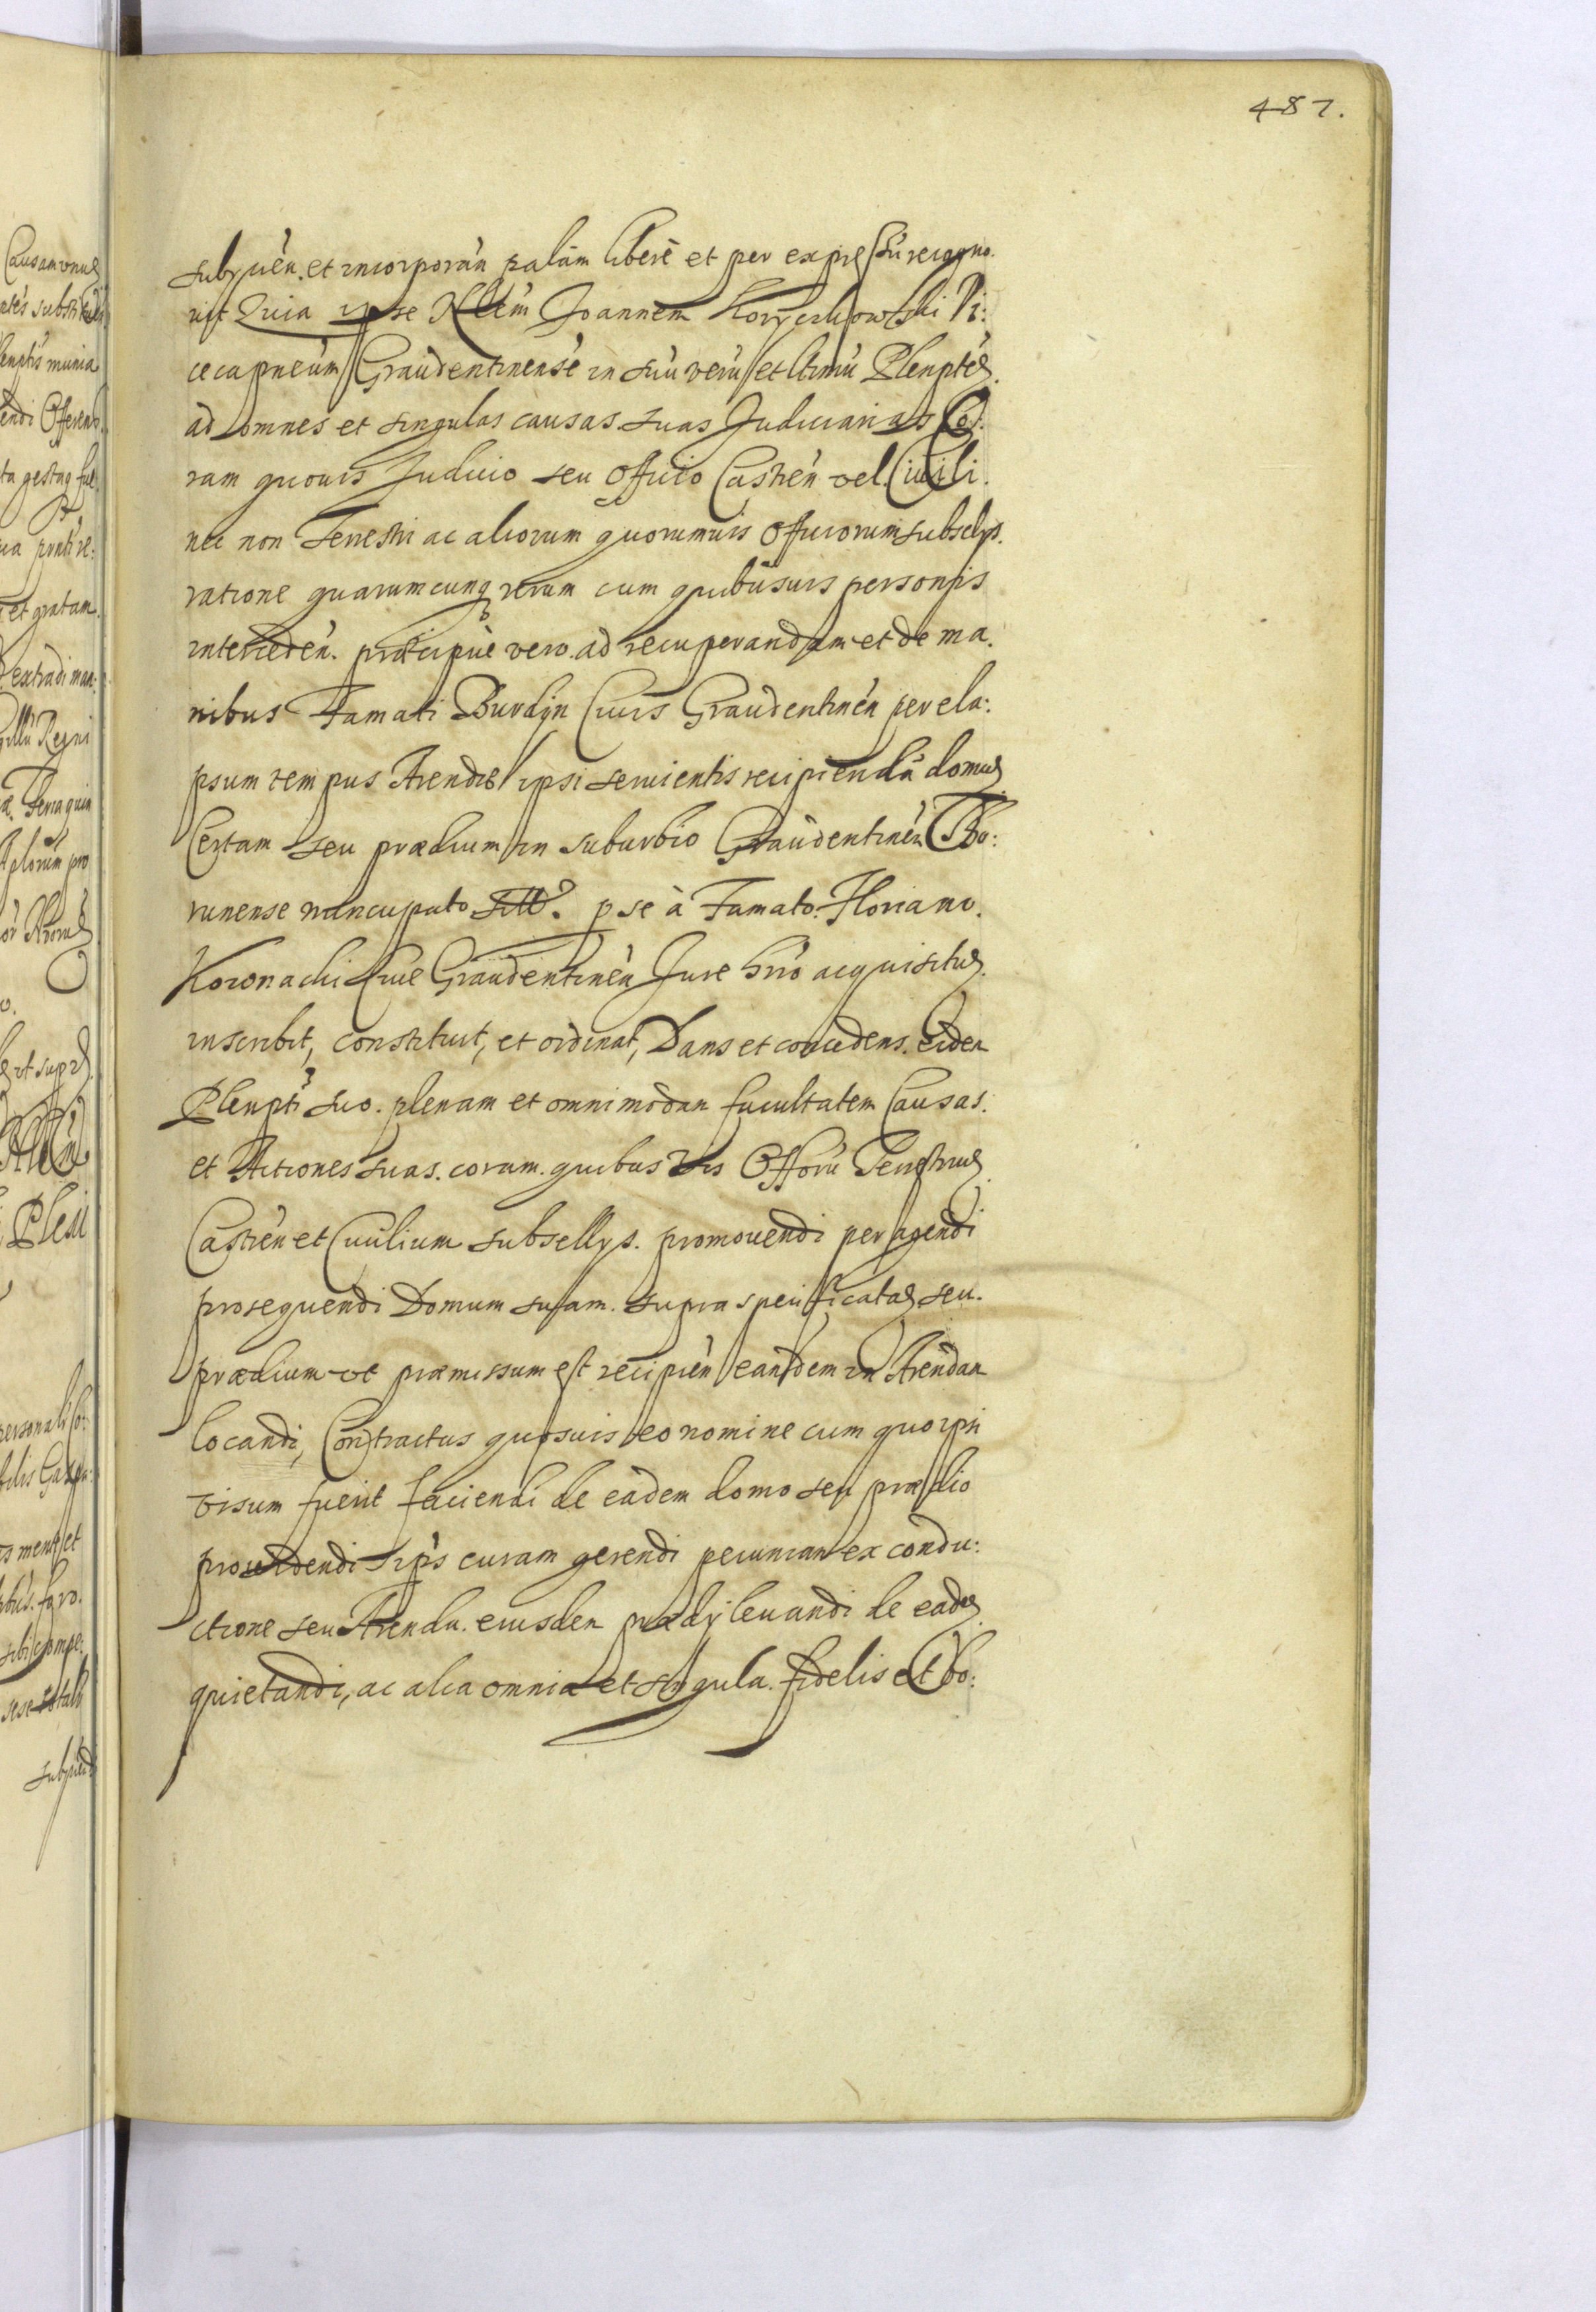 487.
subycień. et incorporań palàm liberè et per expressū recogno.
vit Quia ipse Nlēm Joannem Korzechowski Vi:
cecapneūm Graūdentinensē in suū verū et ltimū Plenptē
ad omnes et singulas causas suas Judiciarias Co:
ram quovis Judicio seu Officio Castreń vel. Civili.
nec non Terrestri ac aliorum quorumvis Officiorum subselys.
ratione quarumcunq rerum cum quibusvis personis
interceden. præcipuè vero. ad recuperandam et de ma.
nibus Famati Burdyn Civis Graūdentineń per ela:
psum tempus Arendæ ipsi servientis recipiendā domū
Certam seu prædium in suburbio Graūdentineń Tho:
runense nuncupato sitt. p se à Famato Floriano.
Koronachi Cive Graūdentineń Jure hrio acquisitū
inscribit, constituit, et ordinat, Dans et concedens. eidem
Plenpti suo. plenam et omnimodam facultatem Causas.
et Actiones suas. coram. quibus vis Offorū Terrestriū
Castreń et Civilium subsellys. promovendi peragendi
prosequendi Domum suam. supra specificatā seu.
prædium ut præmissum est recipień eandem in Arendam
locandi, Contractus quosvis eo nomine cum quo ipsi
visum fuerit faciendi de eadem domo seu prædio
providendi ips curam gerendi pecuniam ex condu:
ctione seu Arenda. eiusdem prædy levandi de eadē
quietandi, ac alia omnia et singula. fidelis et bo:
Causam
substi
munia
et gratam
extradi man:
Regni
pro
ut supr
personali Co:
et